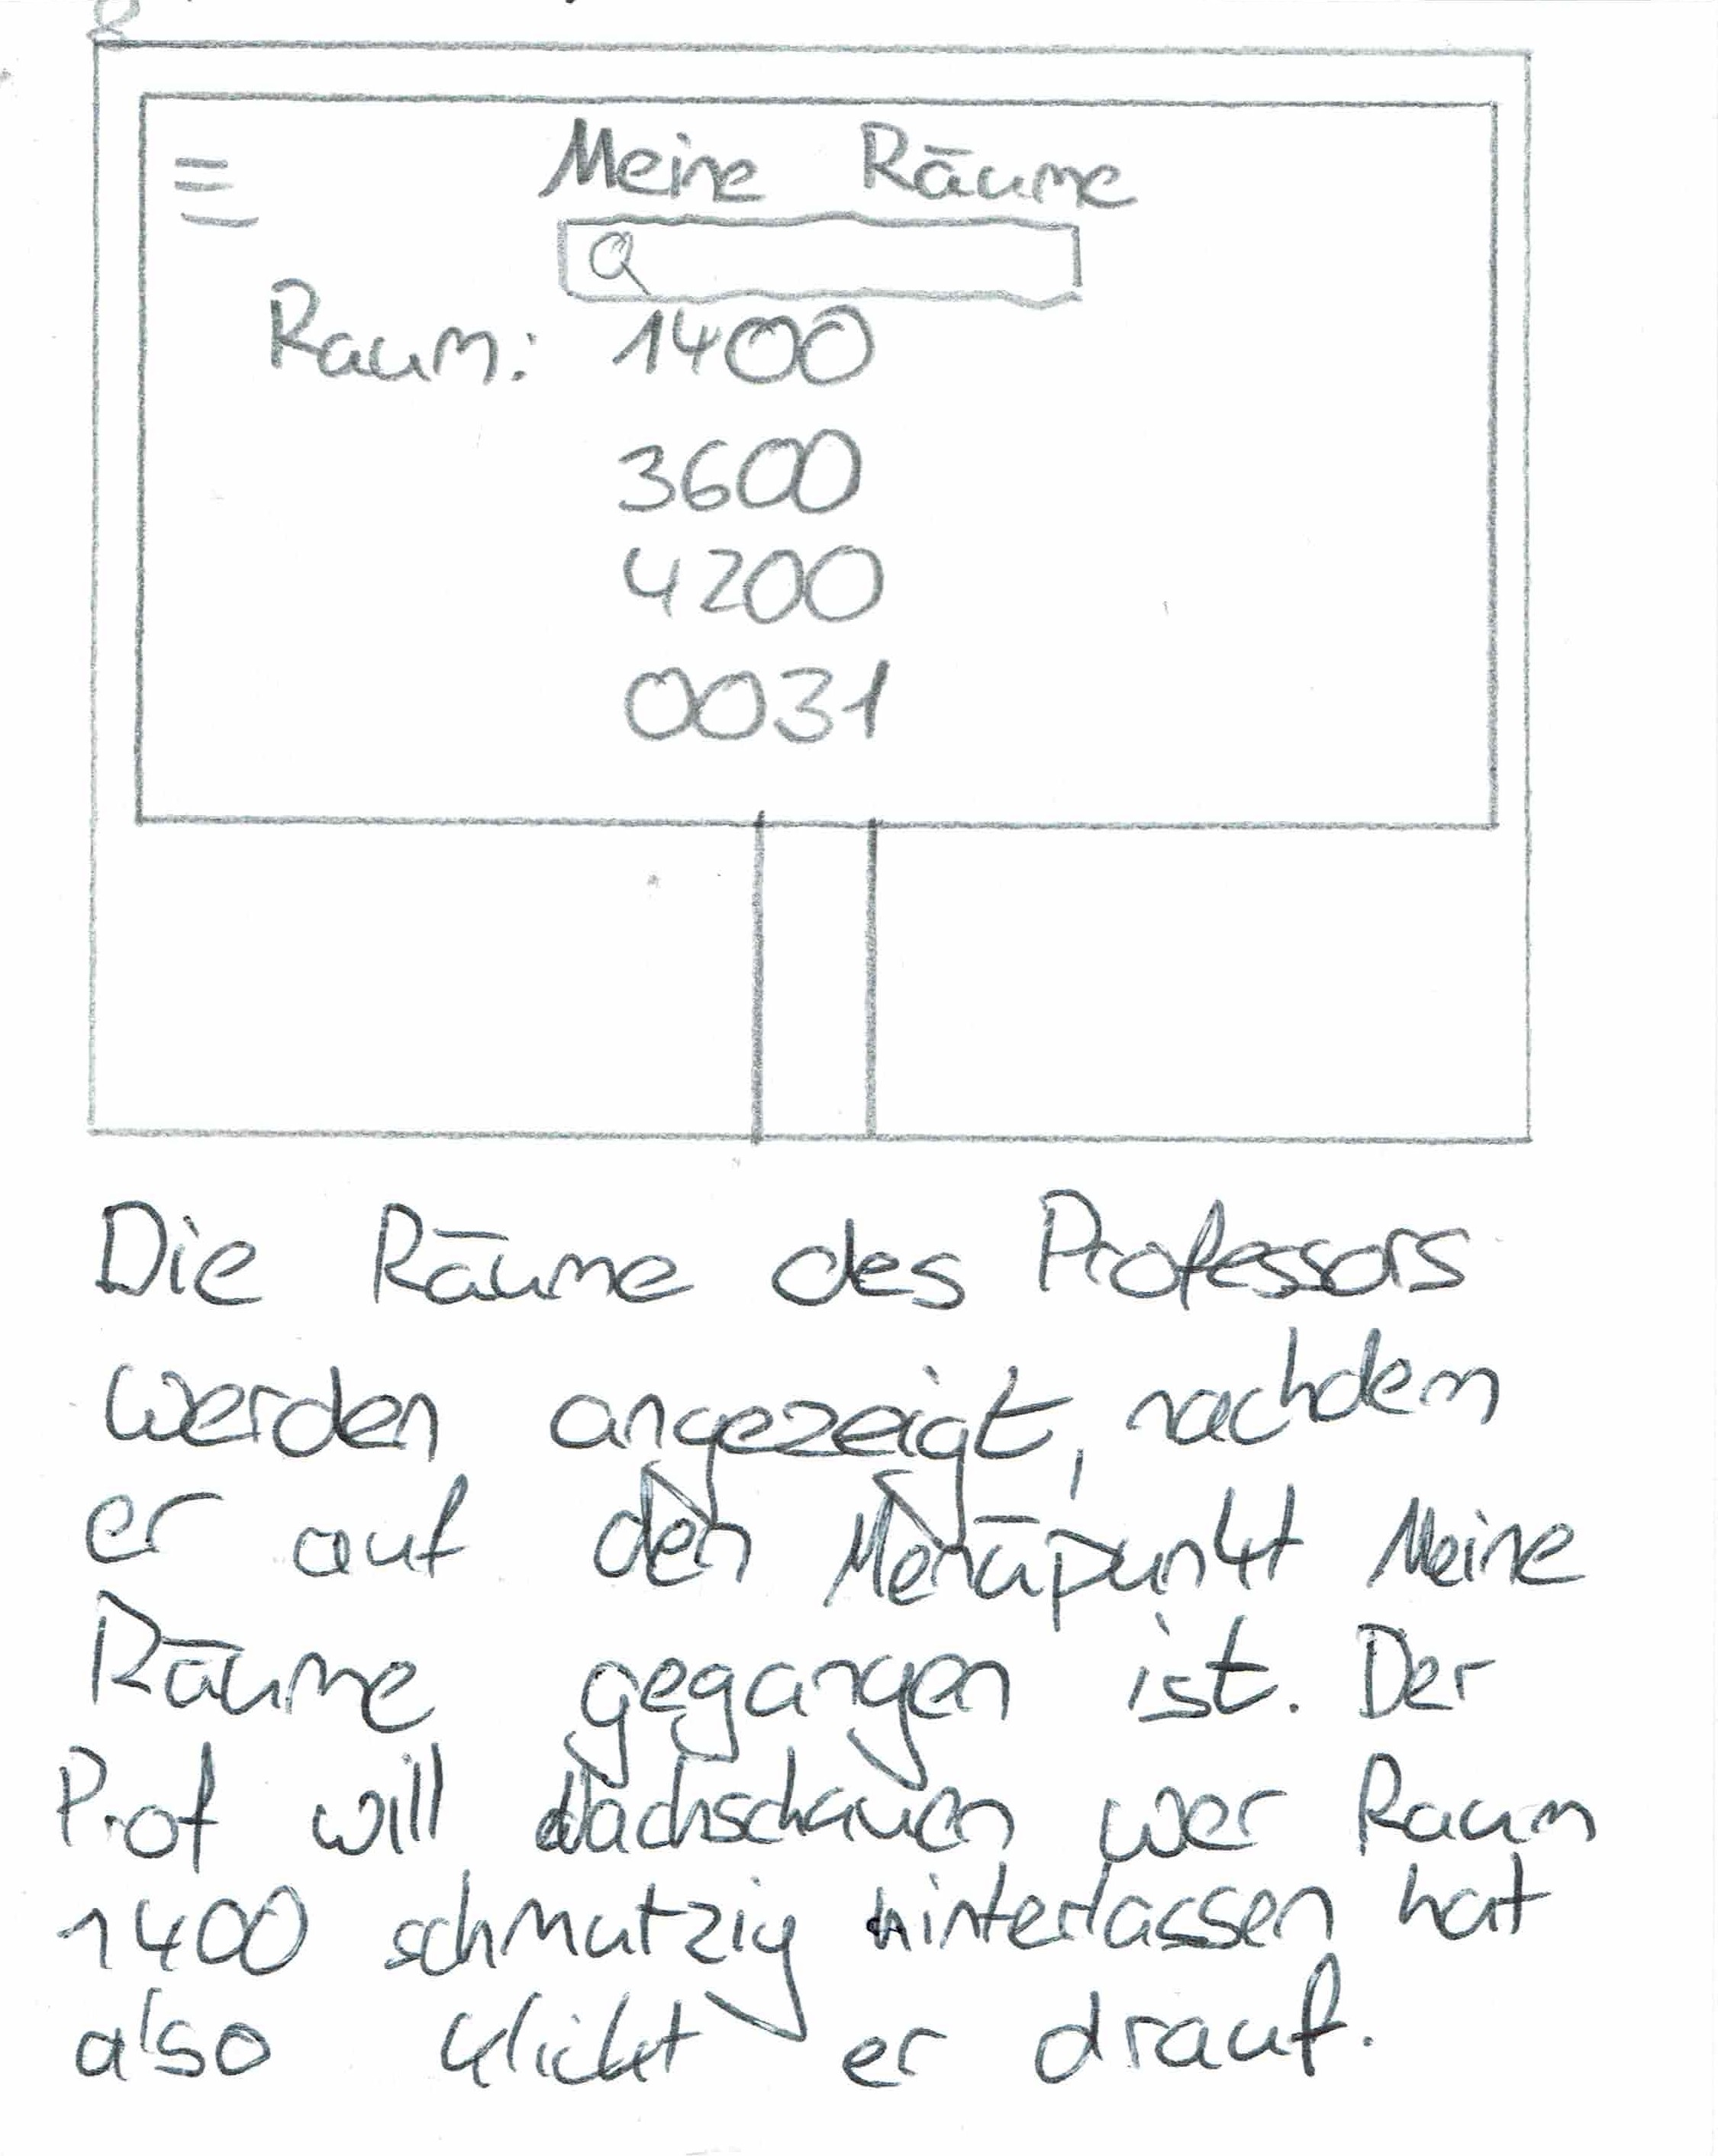 Meine Räume
Raum: 1400
3600
4200
0031
Die Räume des Professors
werden angezeigt, nachdem
er auf den Menüpunkt Meine
Räume gegangen ist. Der
Prof will nachschauen wer Raum
1400 schmutzig hinterlassen hat
also klickt er drauf.